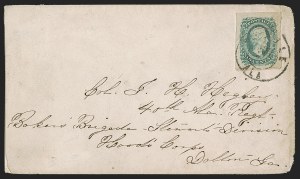 Col. J. H. Higley
40th Ala. Regt.
Bakers Brigade Stewarts Division
Hoods Corps
Dalton, Ga.
ALA